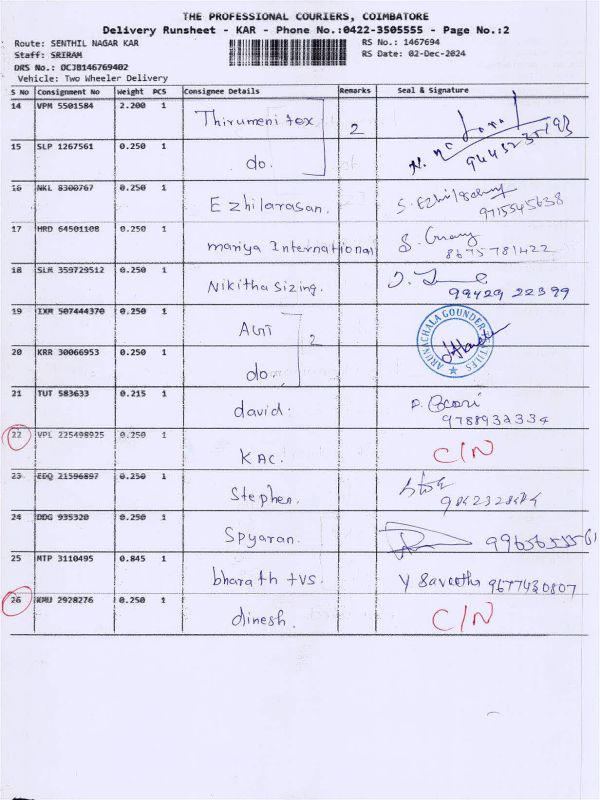 THE PROFESSIONAL COURIERS, COIMBATORE
Delivery Runsheet - KAR - Phone No.:0422-3505555 - Page No.:2
Route: SENTHIL NAGAR KAR
RS No.: 1467694
Staff: SRIRAM
RS Date: 02-Dec-2024
DRS No.: OCJB146769402
Vehicle: Two Wheeler Delivery
S No Consignment No Weight PCS Consignee Details Remarks Seal & Signature
14 VPM 5501584 2.200 1 Thirumeni tex 2
15 SLP 1267561 0.250 1 do.
16 NKL 8300767 0.250 1 Ezhilarasan. 9715545638
17 HRD 64501108 0.250 1 mariya International 8675781422
18 SLM 359729512 0.250 1 Nikitha sizing. 99429 22399
19 IXM 507444370 0.250 1 2
ARUNACHALA GOUNDER
20 KRR 30066953 0.250 1 do.
21 TUT 583633 0.215 1 david. 9788932334
22 VPL 225498925 0.250 1 KAC. C/N
23 EDQ 21596897 0.250 1 Stephen.
24 DDG 935320 0.250 1 Spyaran.
25 MTP 3110495 0.845 1 bharath tvs. Y Saveetha 9677430807
26 KMU 2928276 0.250 1 dinesh. C/N